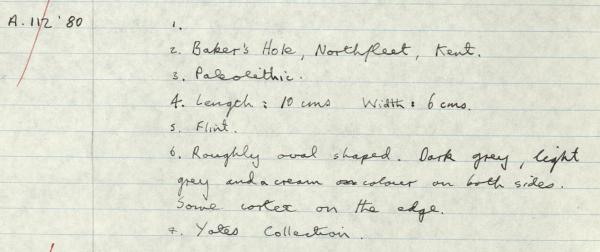 A.112'80 1.
2. Baker's Hole, Northfleet, Kent.
3. Paleolithic.
4. Length: 10 cms Width: 6 cms.
5. Flint.
6. Roughly oval shaped. Dark grey, light
grey and a cream colour on both sides.
Some cortex on the edge.
7. Yates Collection.